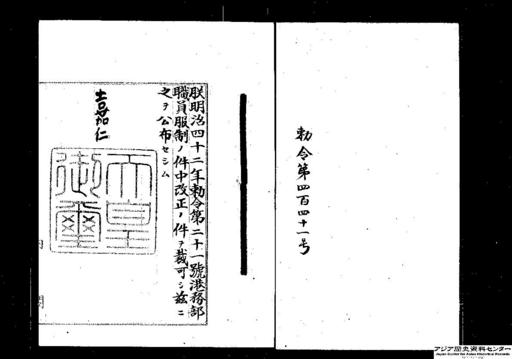 勅令第四百四十一号
朕明治四十二年勅令第二十一號港務部
職員服制ノ件中改正ノ件ヲ裁可シ茲ニ
之ヲ公布セシム
嘉仁
天皇
御璽
アジア歴史資料センター
Japan Center for Asian Historical Records